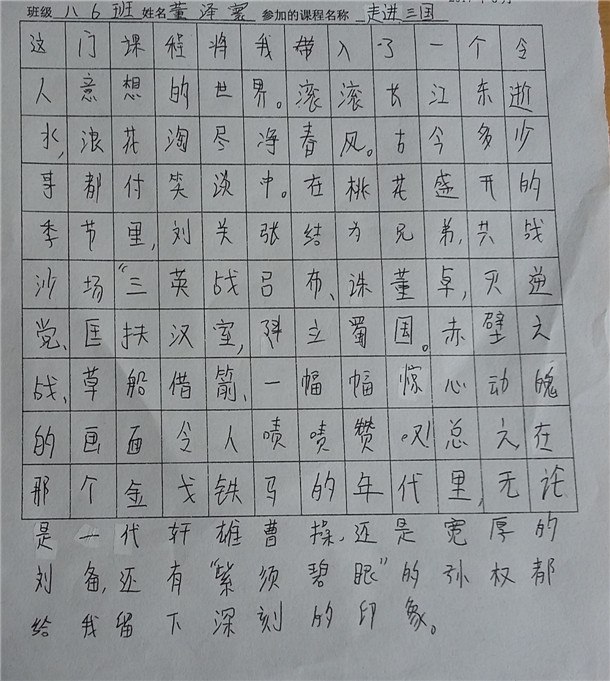 班级 八6班 姓名 董泽寰 参加的课程名称 走进三国
这门课程将我带入了一个令
人意想的世界。滚滚长江东逝
水,浪花淘尽净春风。古今多少
事都付笑淡中。在桃花盛开的
季节里,刘关张结为兄弟,共战
沙场“三英战吕布、诛董卓,灭逆
党、匡扶汉室,择立蜀国。赤壁之
战、草船借箭、一幅幅惊心动魄
的画面令人啧啧赞叹!总之,在
那个金戈铁马的年代里,无论
是一代轩雄曹操,还是宽厚的
刘备,还有“紫须碧眼”的孙权都
给我留下深刻的印象。